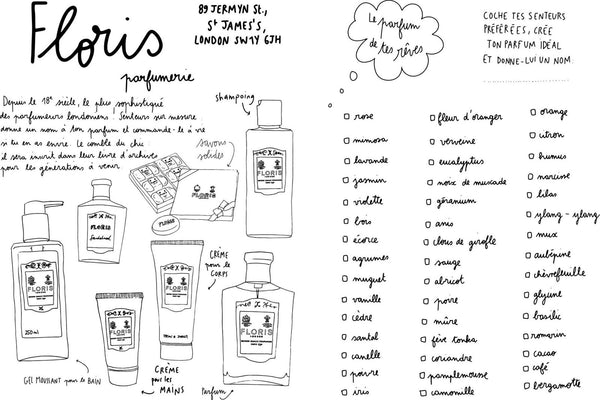 Floris
89 JERMYN ST.,
ST JAMES'S,
LONDON SW1Y 6JH
parfumerie
Depuis le 18e siècle, le plus sophistiqué
des parfumeurs londoniens ! Senteurs sur mesure
donne un nom à ton parfum et commande-le à vie
si tu en as envie. Le comble du chic :
il sera inscrit dans leur livre d'archives
pour les générations à venir.
shampoing
savons
solides
FLORIS
FLORIS
FLORIS
FLORIS
FLORIS
FLORIS
FLORIS
FLORIS
250 ml
CRÈME
pour le
CORPS
CRÈME
pour les
MAINS
GEL MOUSSANT pour le BAIN
Parfum
Le parfum
de tes rêves
COCHE TES SENTEURS
PRÉFÉRÉES, CRÉE
TON PARFUM IDÉAL
ET DONNE-LUI UN NOM
rose
mimosa
lavande
jasmin
violette
bois
écorce
agrumes
muguet
vanille
cèdre
santal
canelle
poivre
iris
fleur d'oranger
verveine
eucalyptus
noix de muscade
géranium
anis
clous de girofle
sauge
abricot
poire
mûre
fève tonka
coriandre
pamplemousse
camomille
orange
citron
humus
narcisse
lilas
ylang-ylang
musc
aubépine
chèvrefeuille
glycine
basilic
romarin
cacao
café
bergamotte